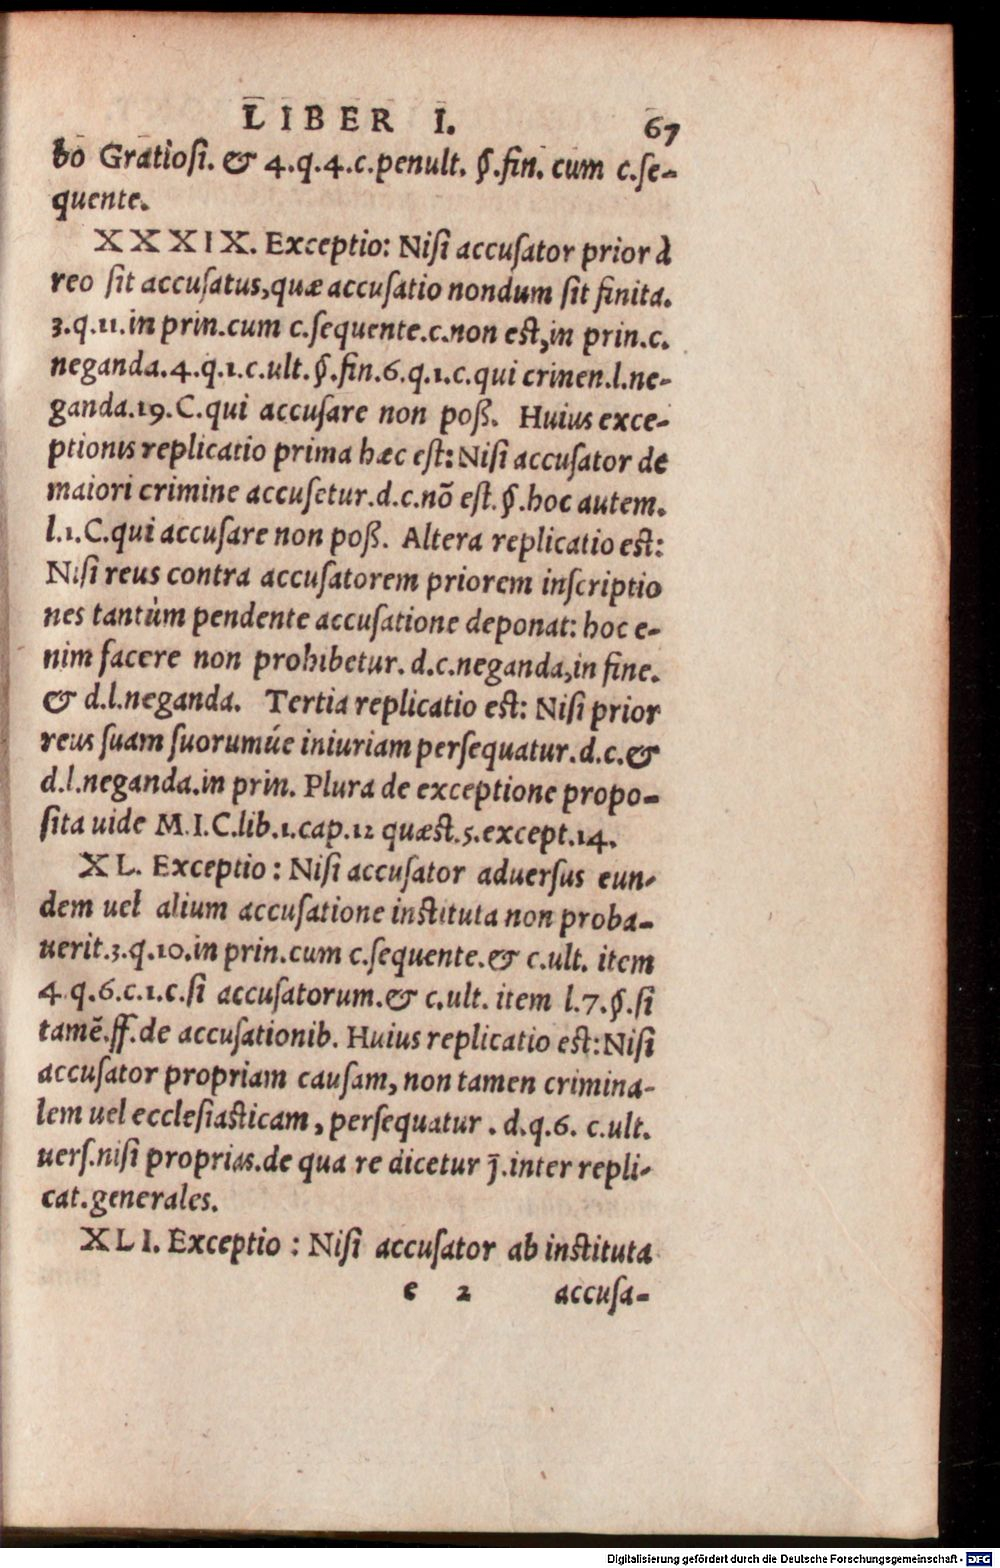 LIBER I. 67
bo Gratiosi. & 4.q.4.c.penult. §.fin. cum c.se-
quente.
XXXIX. Exceptio: Nisi accusator prior à
reo sit accusatus, quæ accusatio nondum sit finita.
3.q.11.in prin.cum c.sequente.c.non est, in prin.c.
neganda.4.q.1.c.ult.§.fin.6.q.1.c.qui crimen.l.ne-
ganda.19.C.qui accusare non poß. Huius exce-
ptionis replicatio prima hæc est: Nisi accusator de
maiori crimine accusetur.d.c.nō est.§.hoc autem.
l.1.C.qui accusare non poß. Altera replicatio est:
Nisi reus contra accusatorem priorem inscriptio
nes tantùm pendente accusatione deponat: hoc e-
nim facere non prohibetur. d.c.neganda, in fine.
& d.l.neganda. Tertia replicatio est: Nisi prior
reus suam suorumúe iniuriam persequatur.d.c.&
d.l.neganda.in prin. Plura de exceptione propo-
sita uide M.I.C.lib.1.cap.12 quæst.5.except.14.
XL. Exceptio: Nisi accusator aduersus eun-
dem uel alium accusatione instituta non proba-
uerit.3.q.10.in prin.cum c.sequente.& c.ult. item
4.q.6.c.1.c.si accusatorum.& c.ult. item l.7.§.si
tamē.ff.de accusationib. Huius replicatio est: Nisi
accusator propriam causam, non tamen crimina-
lem uel ecclesiasticam, persequatur. d.q.6. c.ult.
uers.nisi proprias.de qua re dicetur j̄.inter repli-
cat.generales.
XLI. Exceptio: Nisi accusator ab instituta
e 2 accusa-
Digitalisierung gefördert durch die Deutsche Forschungsgemeinschaft - DFG